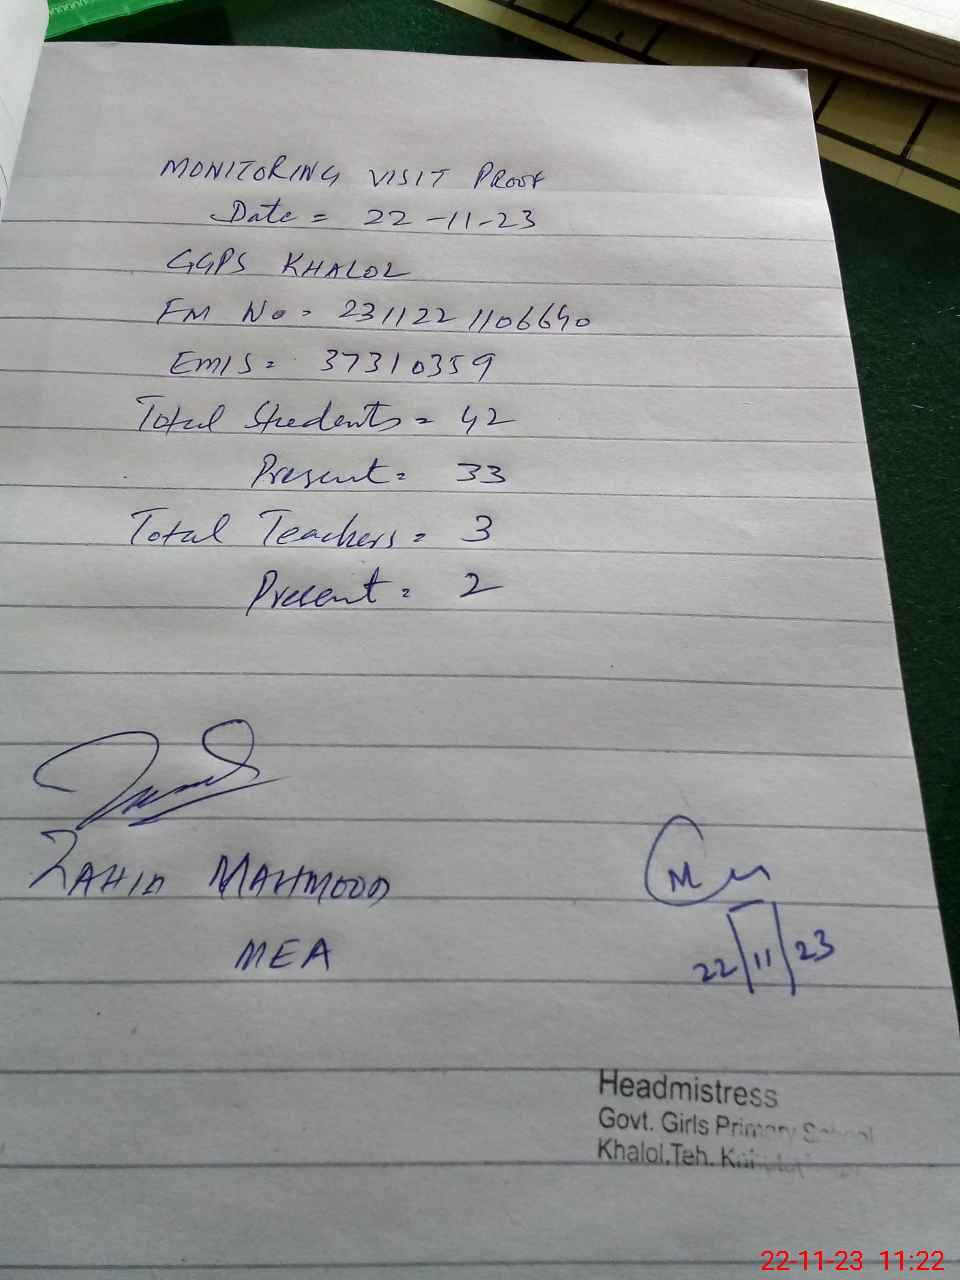 MONITORING VISIT PROOF
Date = 22-11-23
GGPS KHALOL
FM No = 231122 1106690
EMIS = 37310359
Total Students = 42
Present = 33
Total Teachers = 3
Present = 2
ZAHID MAHMOOD
MEA
22/11/23
Headmistress
Govt. Girls Primary School
Khalol, Teh.
22-11-23 11:22